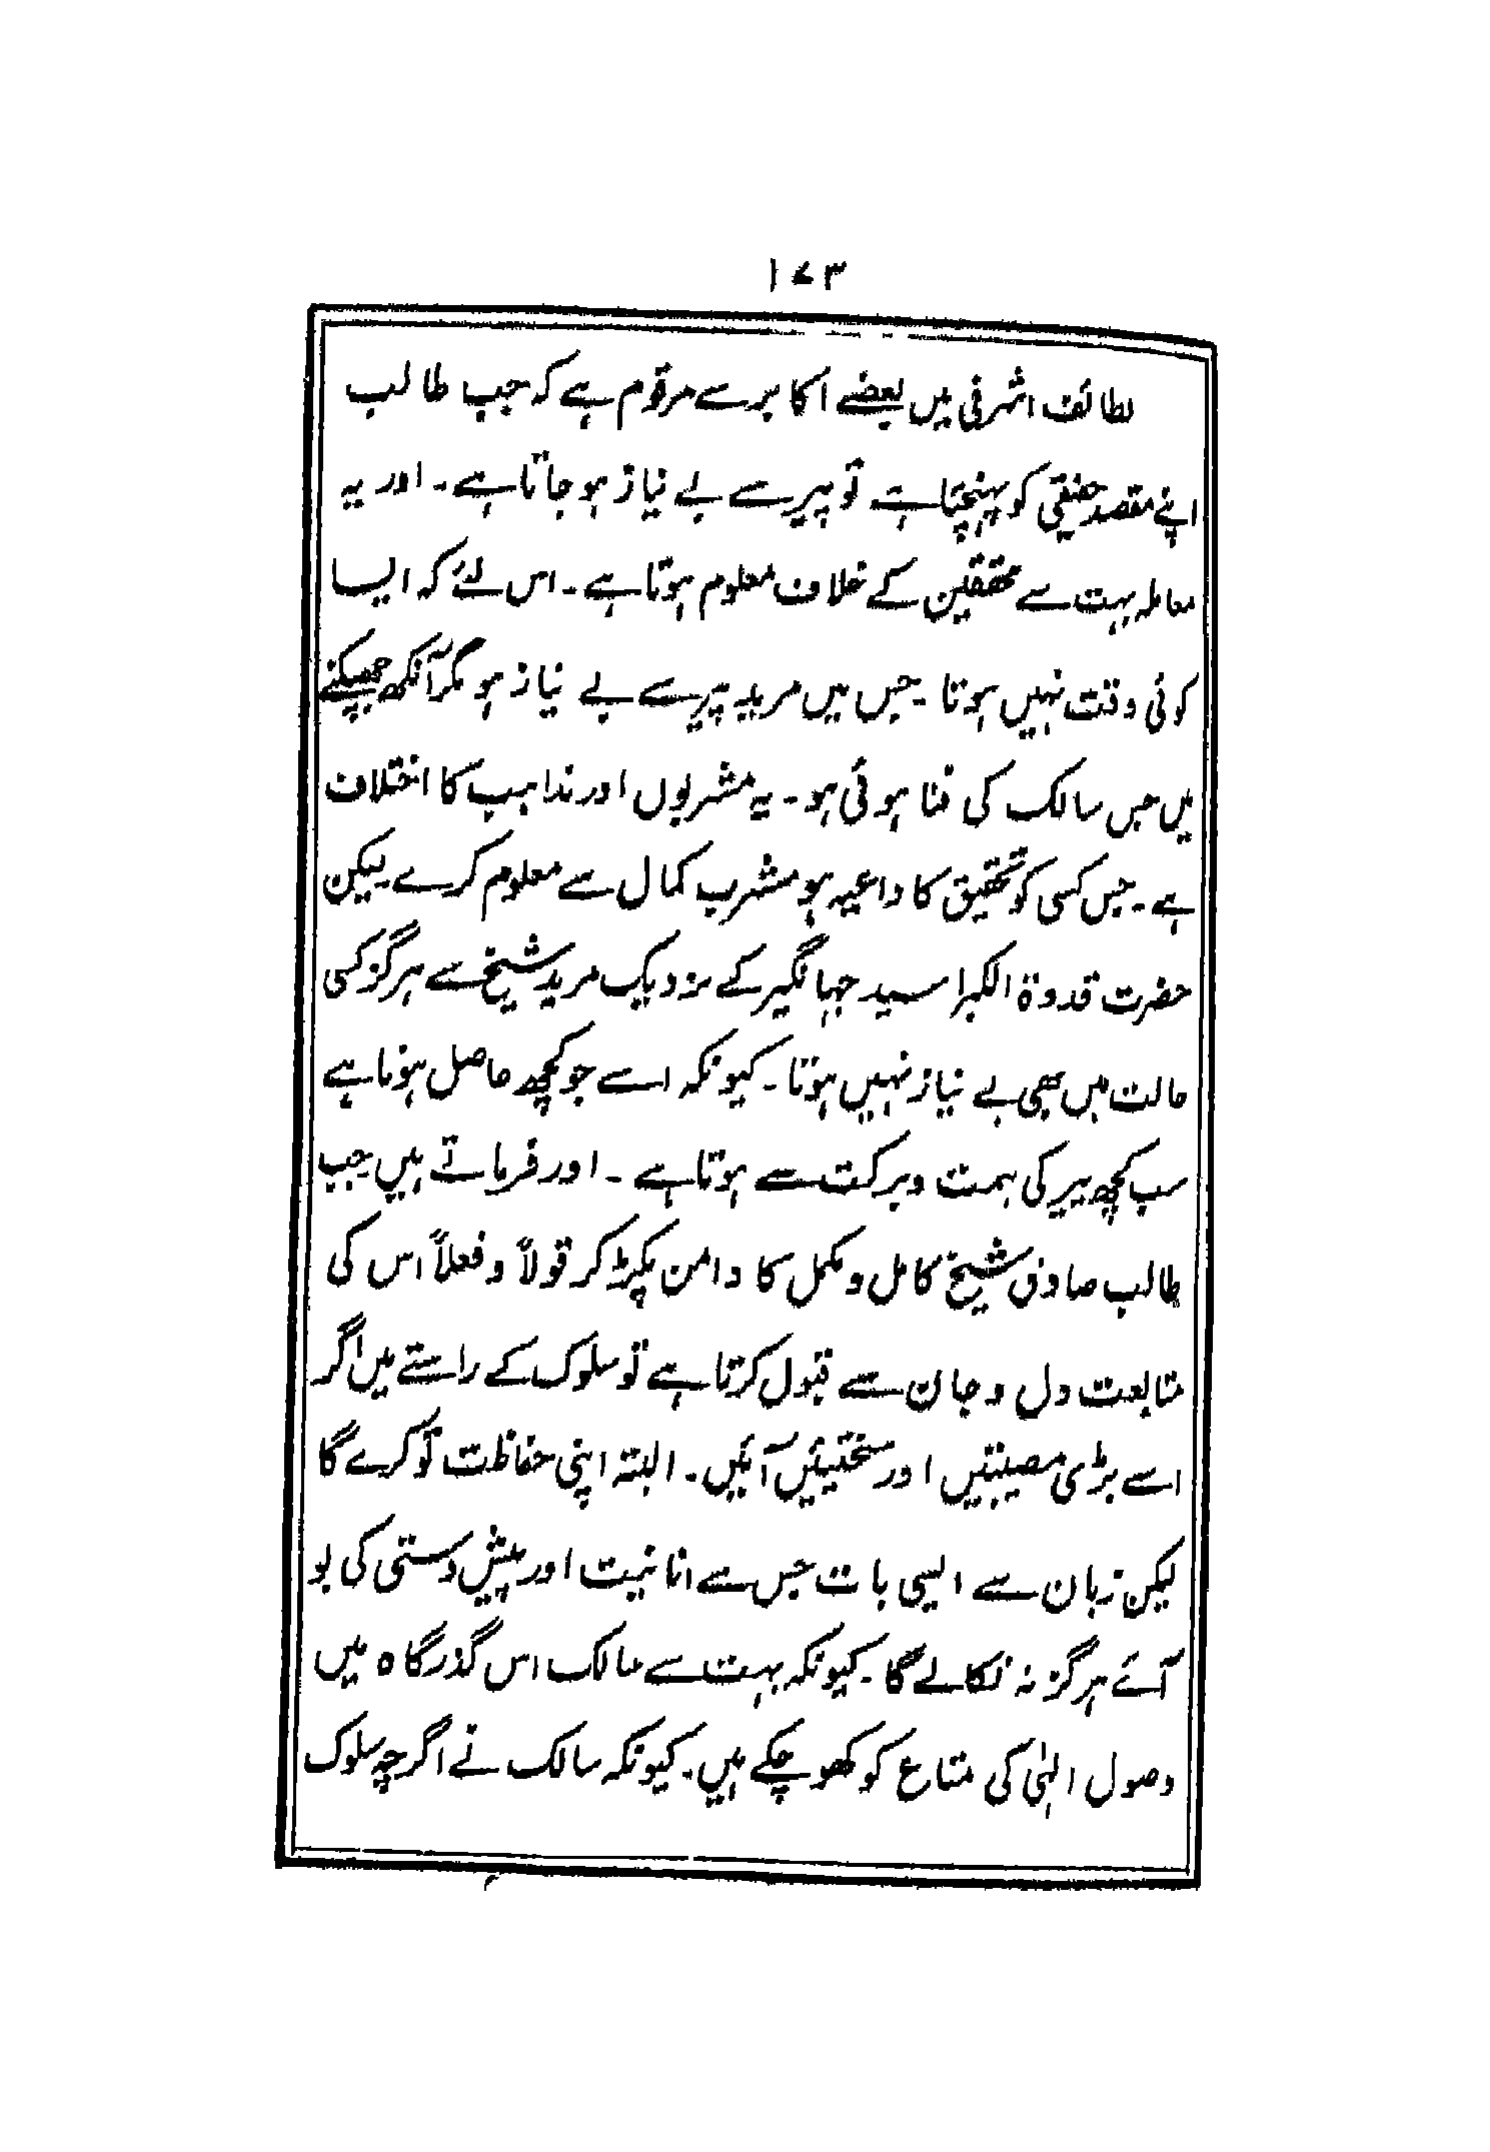 ۱۷۳
لطائف اشرفی میں بعضے اکابر سے مرقوم ہے کہ جب طالب
اپنے مقصد حقیقی کو پہنچتا ہے تو پیر سے بے نیاز ہو جاتا ہے۔ اور یہ
معاملہ بہت سے محققین کے خلاف معلوم ہوتا ہے۔ اس لئے کہ ایسا
کوئی وقت نہیں ہوتا۔ جس میں مرید پیر سے بے نیاز ہو مگر آنکھ جھپکنے
میں جس سالک کی فنا ہوئی ہو۔ یہ مشربوں اور مذاہب کا اختلاف
ہے۔ جس کسی کو تحقیق کا داعیہ ہو مشرب کمال سے معلوم کرے لیکن
حضرت قدوۃ الکبرا سید جہانگیر کے نزدیک مرید شیخ سے ہرگز کسی
حالت میں بھی بے نیاز نہیں ہوتا۔ کیونکہ اسے جو کچھ حاصل ہوتا ہے
سب کچھ پیر کی ہمت و برکت سے ہوتا ہے۔ اور فرماتے ہیں جب
طالب صادق شیخ کامل و مکمل کا دامن پکڑ کر قولاً و فعلاً اس کی
متابعت دل و جان سے قبول کرتا ہے تو سلوک کے راستے میں اگر
اسے بڑی مصیبتیں اور سختیئیں آئیں۔ البتہ اپنی حفاظت تو کرے گا
لیکن زبان سے ایسی بات جس سے انانیت اور پیش دستی کی بو
آئے ہرگز نہ نکالے گا۔ کیونکہ بہت سے سالک اس گذرگاہ میں
وصول الٰہی کی متاع کو کھو چکے ہیں۔ کیونکہ سالک نے اگرچہ سلوک